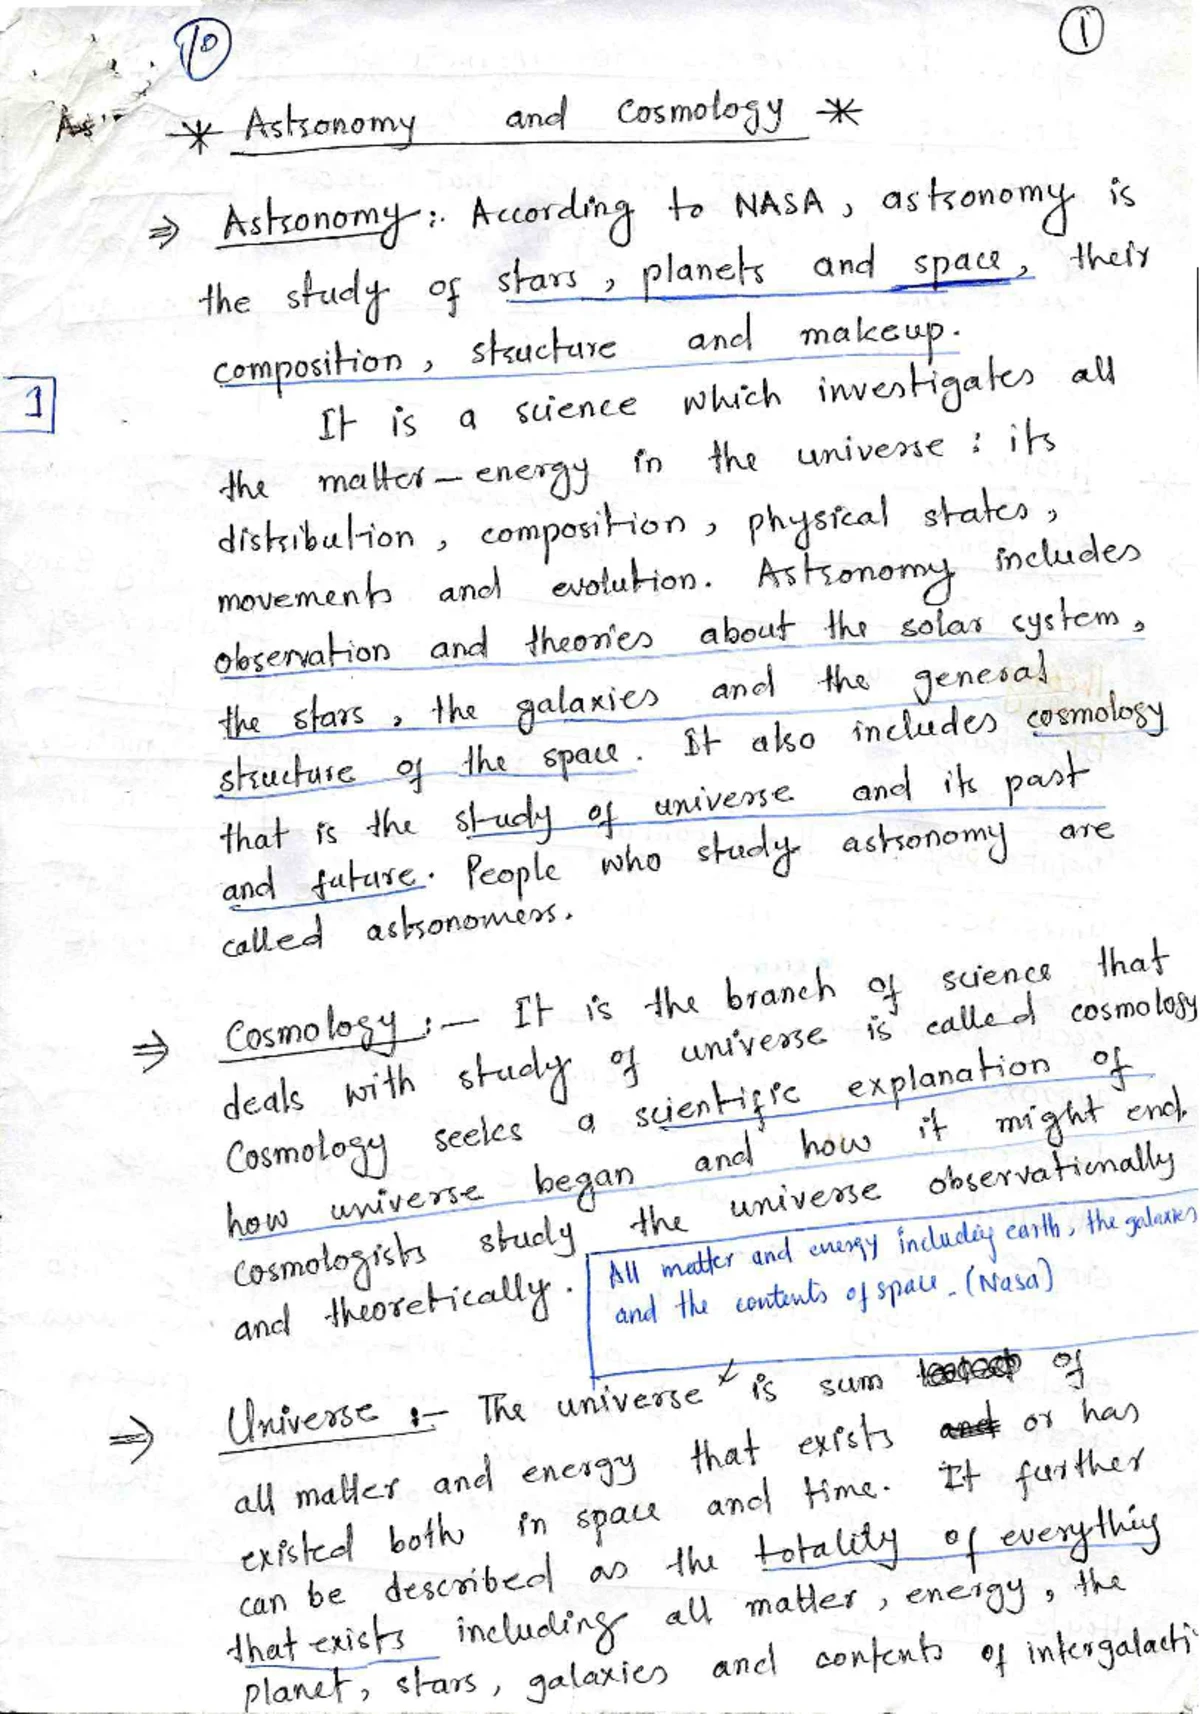 10
1
* Astronomy and Cosmology *
⇒ Astronomy:. According to NASA, astronomy is
the study of stars, planets and space, their
composition, structure and makeup.
1
It is a science which investigates all
the matter - energy in the universe : its
distribution, composition, physical states,
movements and evolution. Astronomy includes
observation and theories about the solar system,
the stars, the galaxies and the general
structure of the space. It also includes cosmology
that is the study of universe and its past
and future. People who study astronomy are
called astronomers.
⇒ Cosmology :- It is the branch of science that
deals with study of universe is called cosmology
Cosmology seeks a scientific explanation of
how universe began and how it might end.
Cosmologists study the universe observationally
and theoretically.
All matter and energy including earth, the galaxies
and the contents of space. (Nasa)
⇒ Universe :- The universe is sum of
all matter and energy that exists and or has
existed both in space and time. It further
can be described as the totality of everything
that exists including all matter, energy, the
planet, stars, galaxies and contents of intergalacti